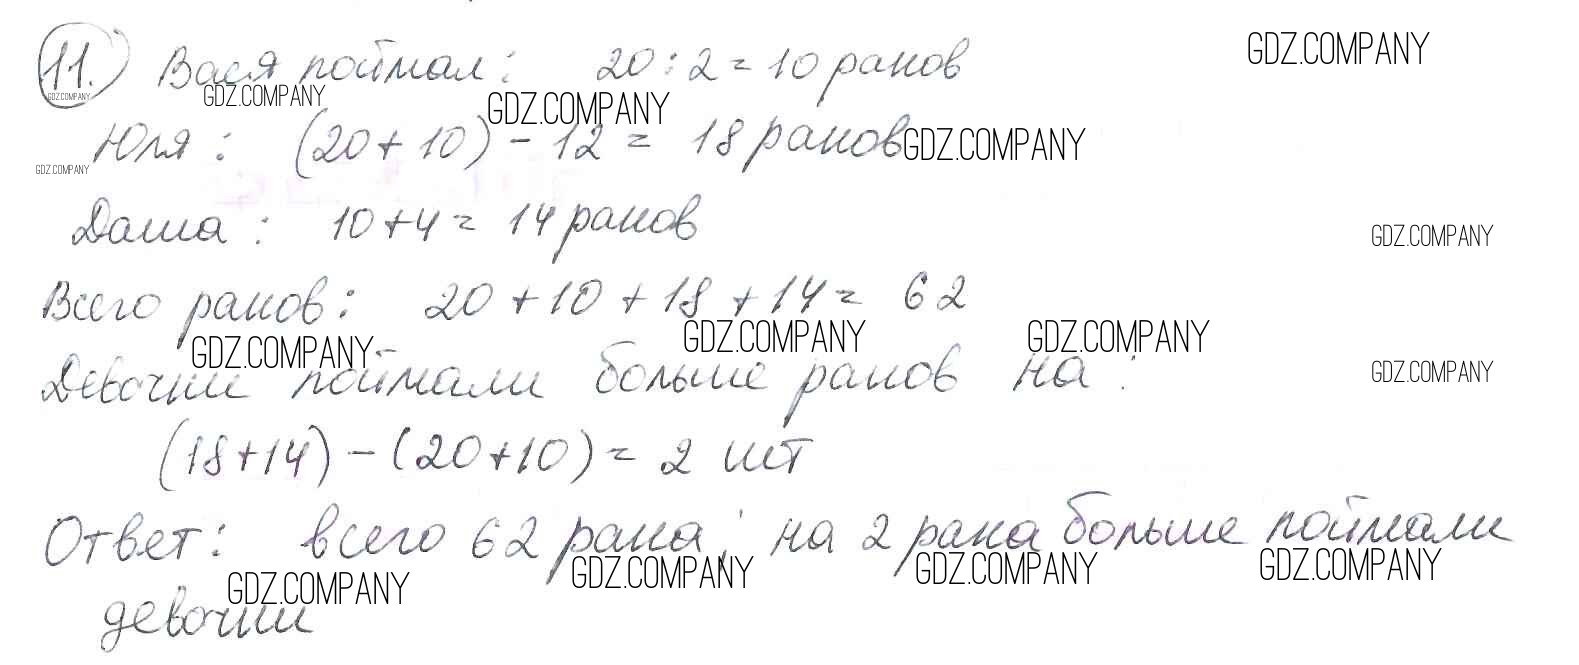 11. Вася поймал: 20 : 2 = 10 раков
GDZ.COMPANY
GDZ.COMPANY
GDZ.COMPANY
GDZ.COMPANY
Юля: (20 + 10) - 12 = 18 раков
GDZ.COMPANY
GDZ.COMPANY
Даша: 10 + 4 = 14 раков
GDZ.COMPANY
Всего раков: 20 + 10 + 18 + 14 = 62
GDZ.COMPANY
GDZ.COMPANY
GDZ.COMPANY
Девочки поймали больше раков на:
GDZ.COMPANY
(18 + 14) - (20 + 10) = 2 шт
Ответ: всего 62 рака; на 2 рака больше поймали
GDZ.COMPANY
GDZ.COMPANY
GDZ.COMPANY
GDZ.COMPANY
девочки